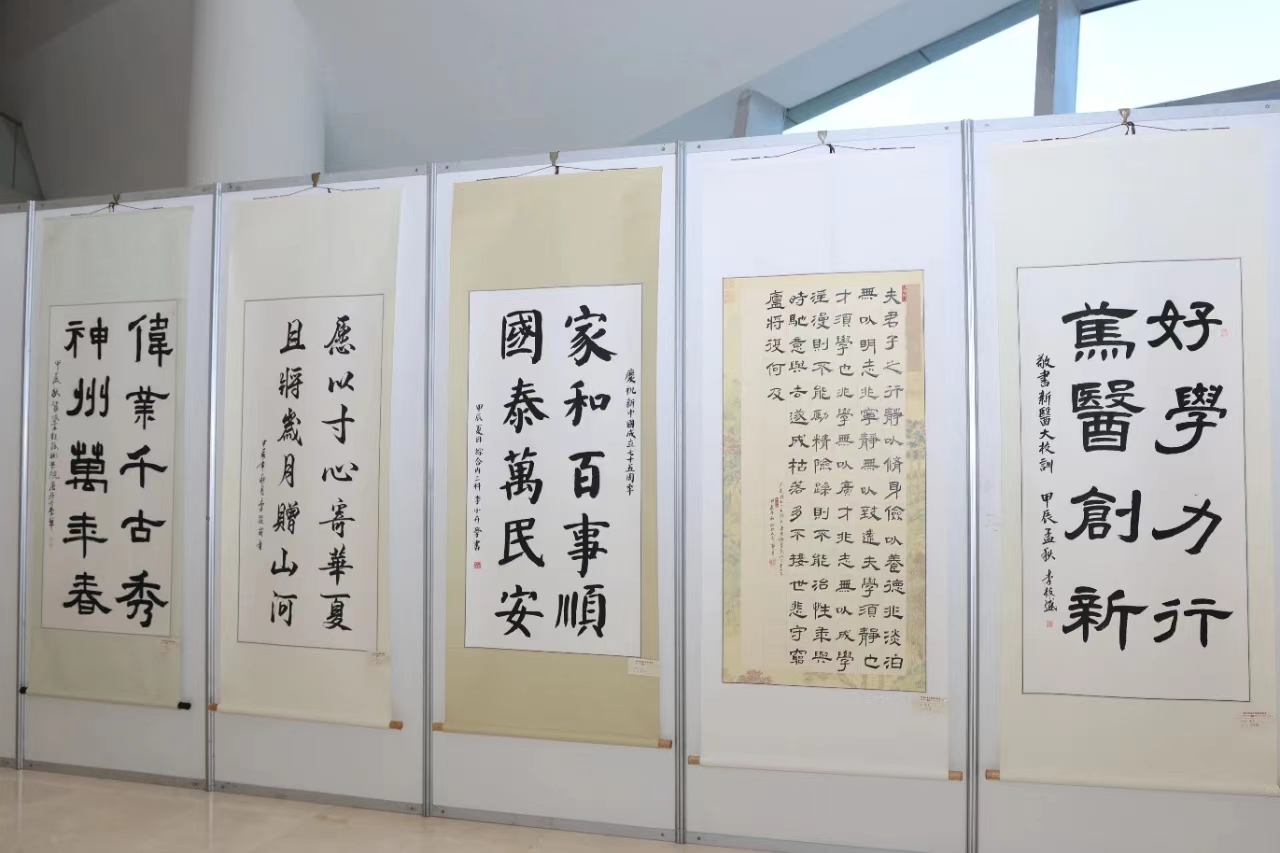 好學力行
篤醫創新
敬書新醫大校訓 甲辰孟秋
夫君子之行靜以脩身儉以養德非淡泊
無以明志非寧靜無以致遠夫學須靜也
才須學也非學無以廣才非志無以成學
淫漫則不能勵精險躁則不能治性年與
時馳意與去遂成枯落多不接世悲守窮
廬將復何及
慶祝新中國成立七十五周年
家和百事順
國泰萬民安
甲辰夏日 綜合内二科 李小
愿以寸心寄華夏
且將歲月贈山河
偉業千古秀
神州萬年春
甲辰秋